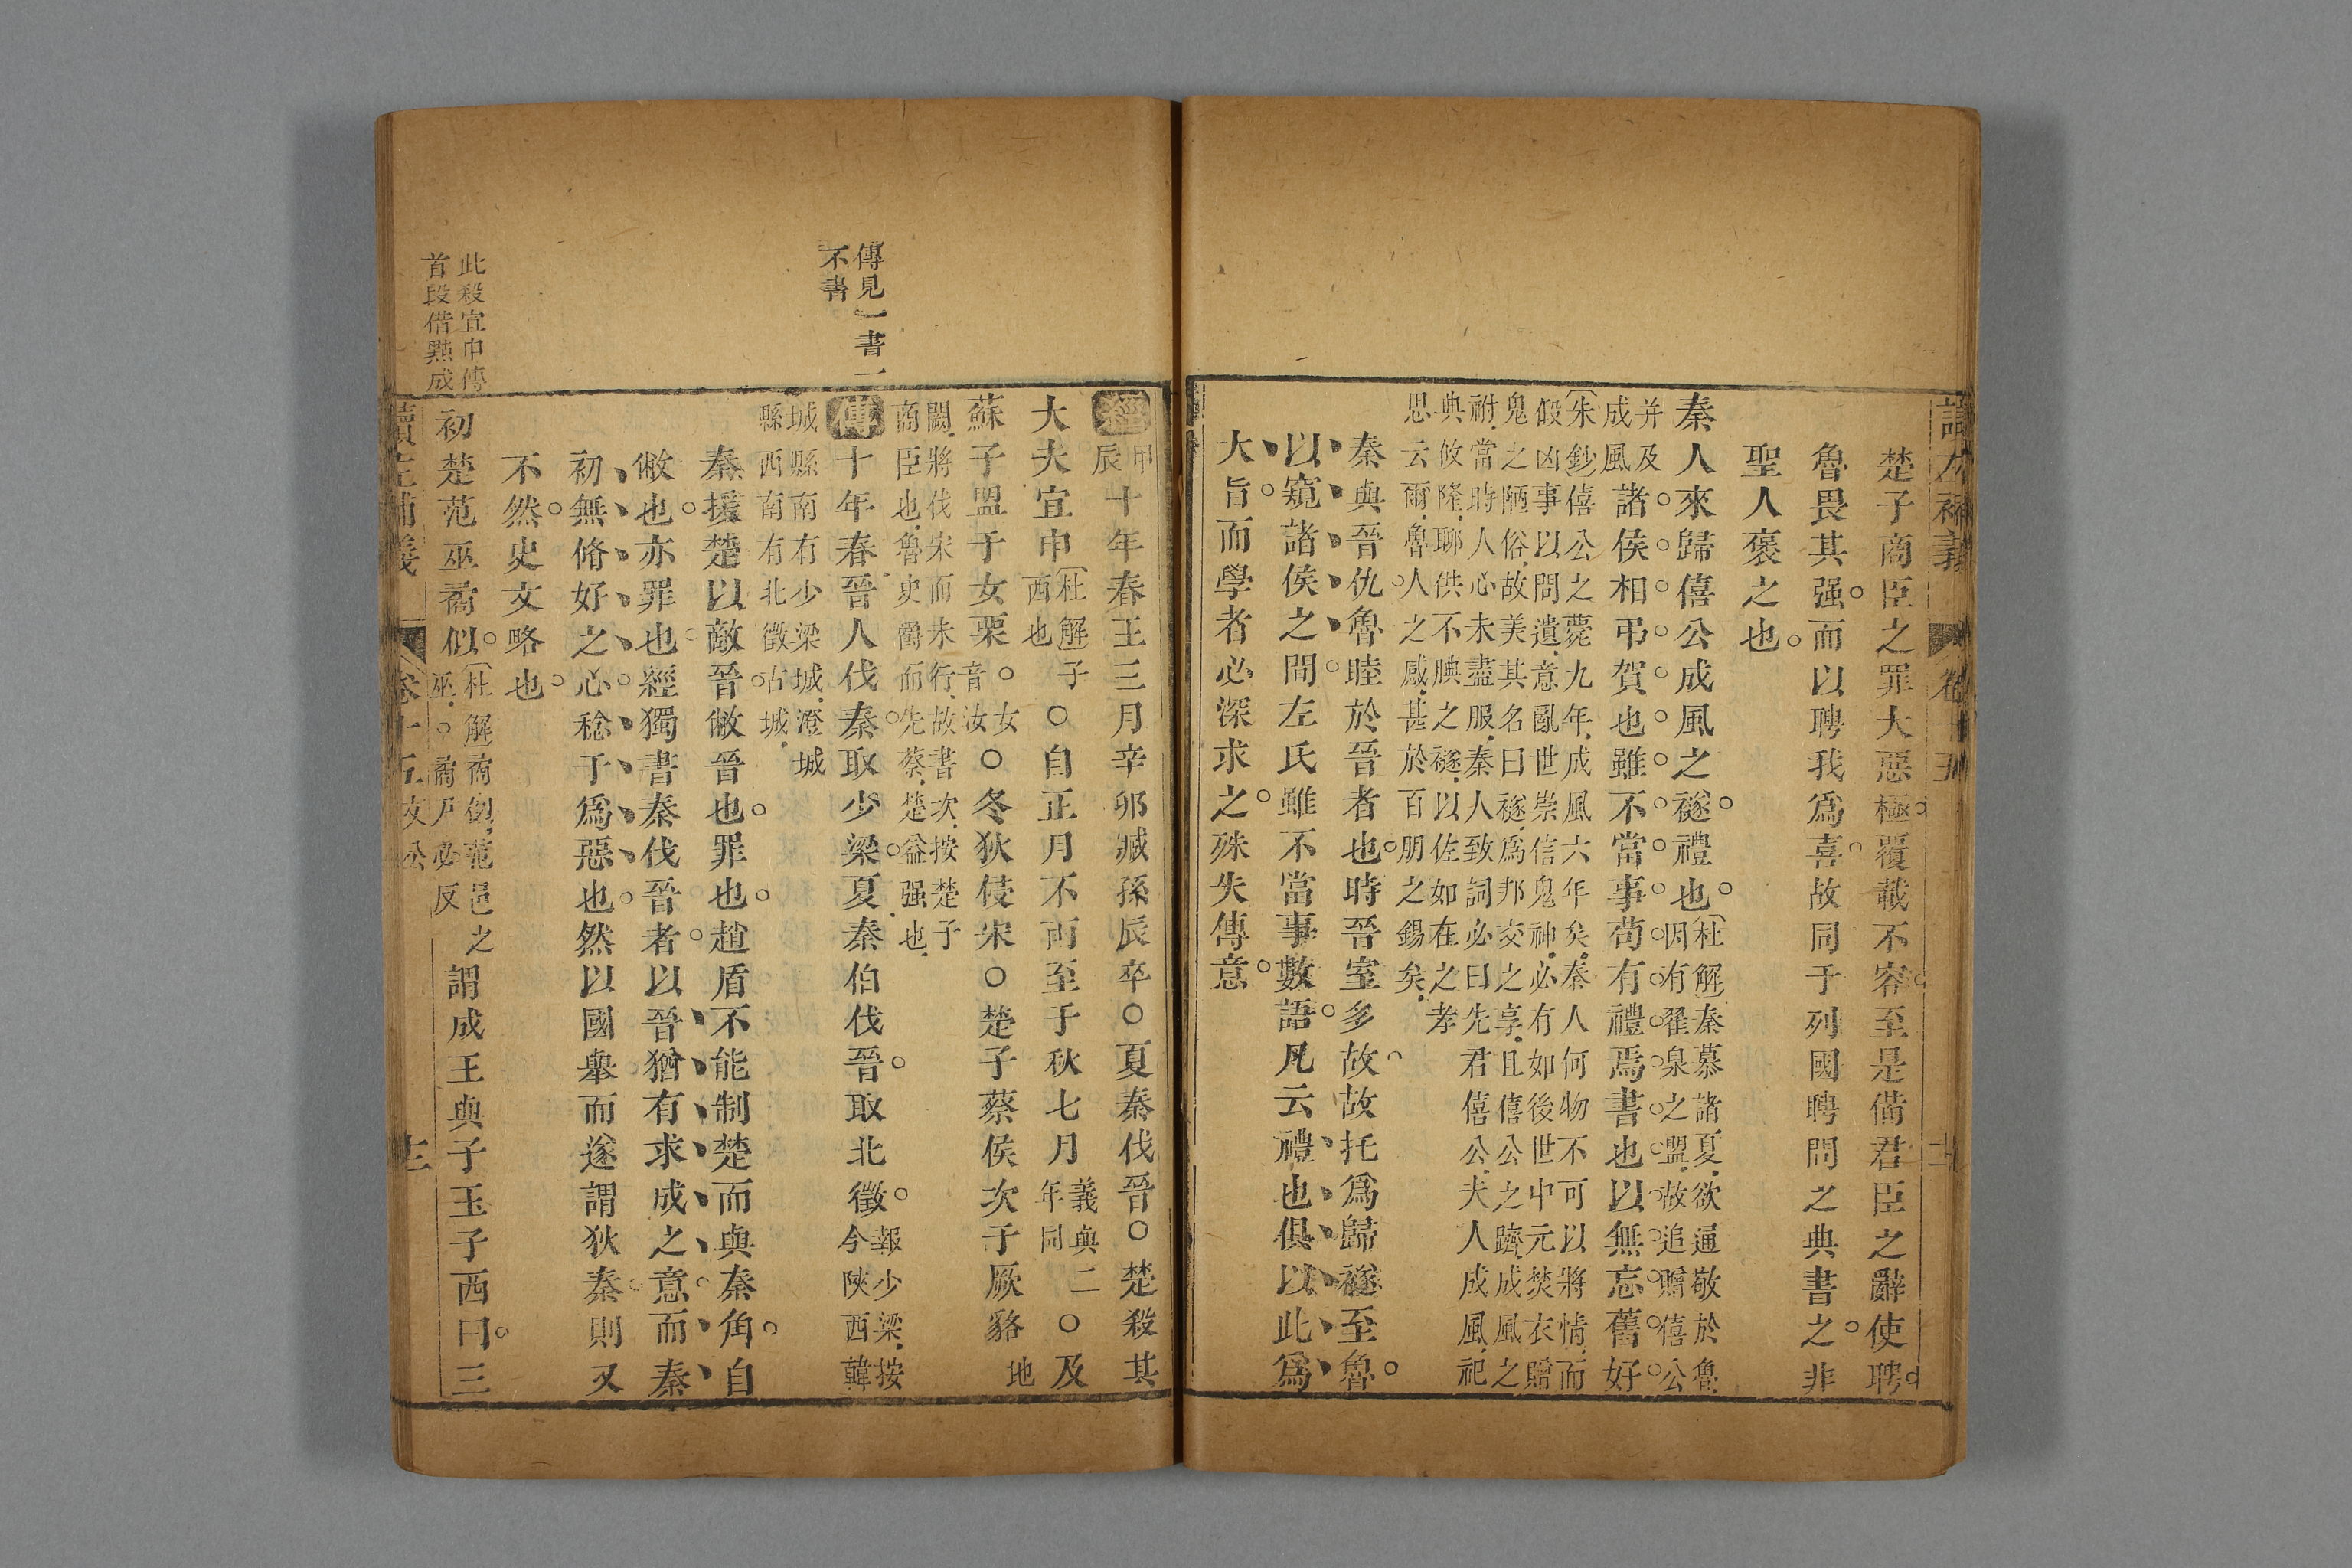 讀左補義 卷十五
楚子商臣之罪大惡極覆載不容至是備君臣之辭使聘
魯畏其强而以聘我爲喜故同于列國聘問之典書之非
聖人褒之也
秦人來歸僖公成風之襚禮也〔杜解〕秦慕諸夏欲通敬於魯因有翟泉之盟故追贈僖公
并及成風諸侯相弔賀也雖不當事苟有禮焉書也以無忘舊好
〔朱鈔〕僖公之薨九年成風六年矣秦人何物不可以將情而
假凶事以問遺意亂世崇信鬼神必有如後世中元焚衣贈
鬼之陋俗故美其名曰襚爲邦交之享且僖公之躋成風之
祔當時人心未盡服秦人致詞必曰先君僖公夫人成風祀
典攸隆聊供不腆之襚以佐如在之孝
思云爾魯人之感甚於百朋之錫矣
秦與晉仇魯睦於晉者也時晉室多故故托爲歸襚至魯
以窺諸侯之問左氏雖不當事數語凡云禮也俱以此爲
大旨而學者必深求之殊失傳意
經甲辰十年春王三月辛卯臧孫辰卒○夏秦伐晉○楚殺其
大夫宜申〔杜解〕子西也○自正月不雨至于秋七月義與二年同○及
蘇子盟于女栗○女音汝○冬狄侵宋○楚子蔡侯次于厥貉地
闕將伐宋而未行故書次按楚子
商臣也魯史爵而先蔡楚益强也
傳見一書一
不書
傳十年春晉人伐秦取少梁夏秦伯伐晉取北徵報少梁按今陝西韓
城縣南有少梁城澄城
縣西南有北徵古城
秦援楚以敵晉敝晉也罪也趙盾不能制楚而與秦角自
敝也亦罪也經獨書秦伐晉者以晉猶有求成之意而秦
初無脩好之心稔于爲惡也然以國舉而遂謂狄秦則又
不然史文略也
此殺宜申傳
首段借點成
初楚范巫矞似〔杜解〕矞似范邑之巫○矞尹必反謂成王與子玉子西曰三
讀左補義 卷十五 文公 十二